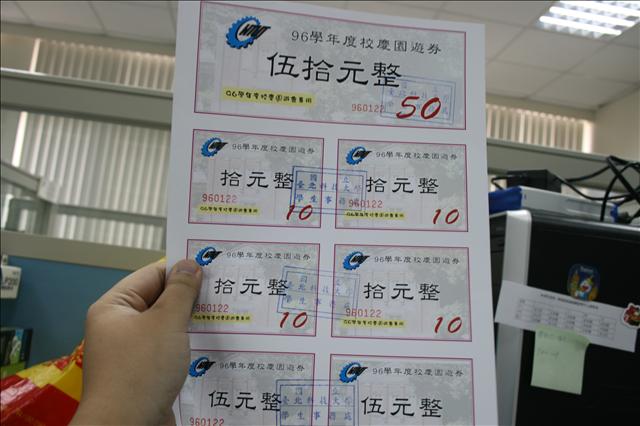 96學年度校慶園遊券
伍拾元整
96學年度校慶園遊會專用
960122
50
96學年度校慶園遊券
拾元整
960122
10
96學年度校慶園遊會專用
96學年度校慶園遊券
拾元整
960122
10
96學年度校慶園遊會專用
國立
臺北科技大學
學生事務處
96學年度校慶園遊券
拾元整
960122
10
96學年度校慶園遊會專用
96學年度校慶園遊券
拾元整
960122
10
96學年度校慶園遊會專用
國立
臺北科技大學
學生事務處
96學年度校慶園遊券
伍元整
960122
96學年度校慶園遊券
伍元整
國立
臺北科技大學
學生事務處